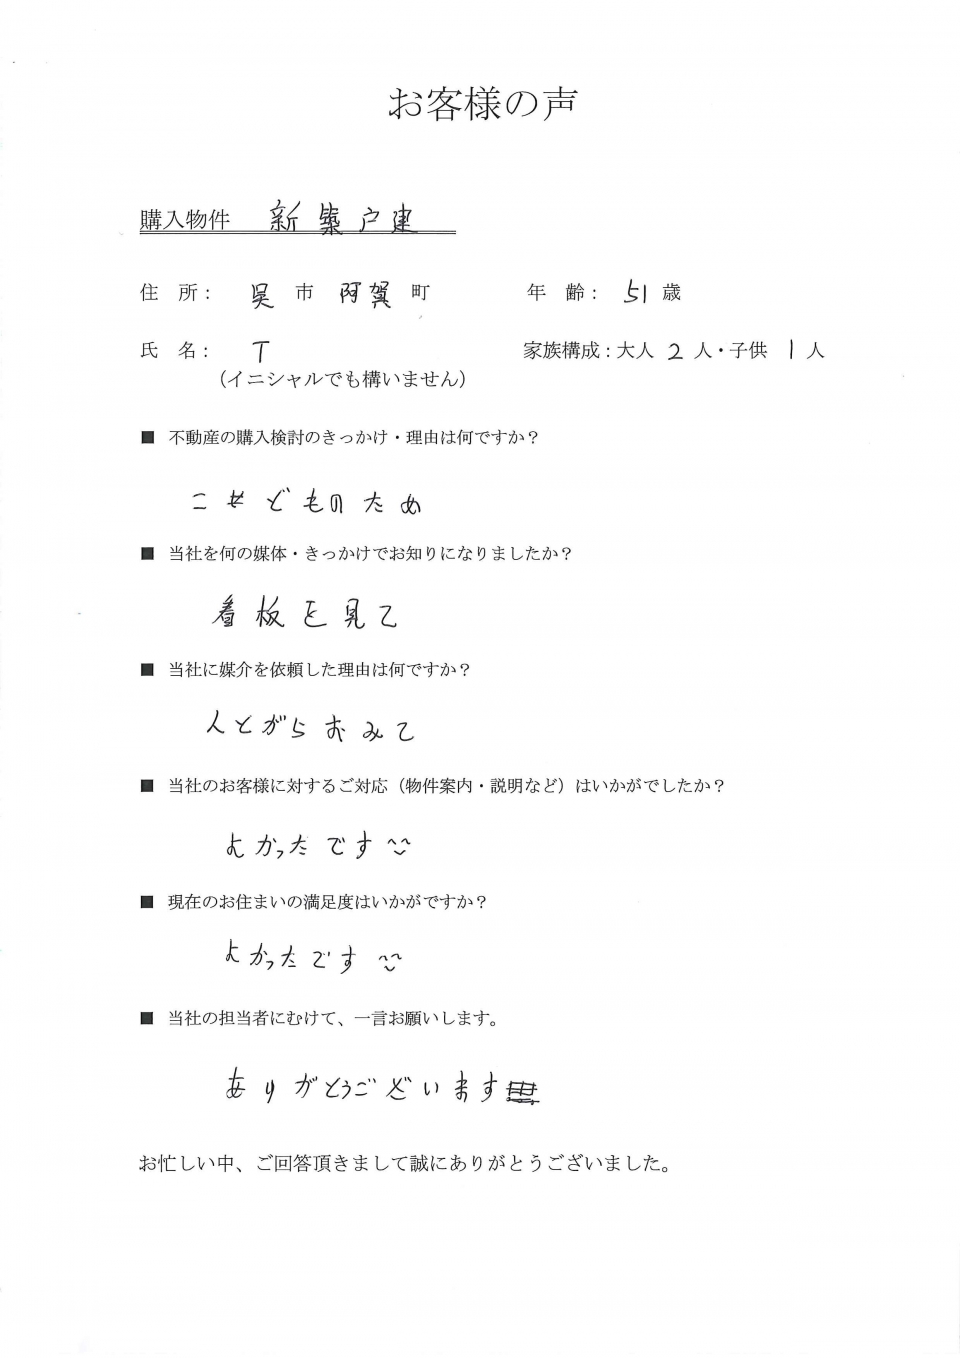 お客様の声
購入物件 新築戸建
住 所： 呉 市 阿賀 町 年 齢： 51 歳
氏 名： T 家族構成：大人 2 人・子供 1 人
（イニシャルでも構いません）
■ 不動産の購入検討のきっかけ・理由は何ですか？
こどものため
■ 当社を何の媒体・きっかけでお知りになりましたか？
看板を見て
■ 当社に媒介を依頼した理由は何ですか？
人とがらおみて
■ 当社のお客様に対するご対応（物件案内・説明など）はいかがでしたか？
よかったです
■ 現在のお住まいの満足度はいかがですか？
よかったです
■ 当社の担当者にむけて、一言お願いします。
ありがとうございます
お忙しい中、ご回答頂きまして誠にありがとうございました。